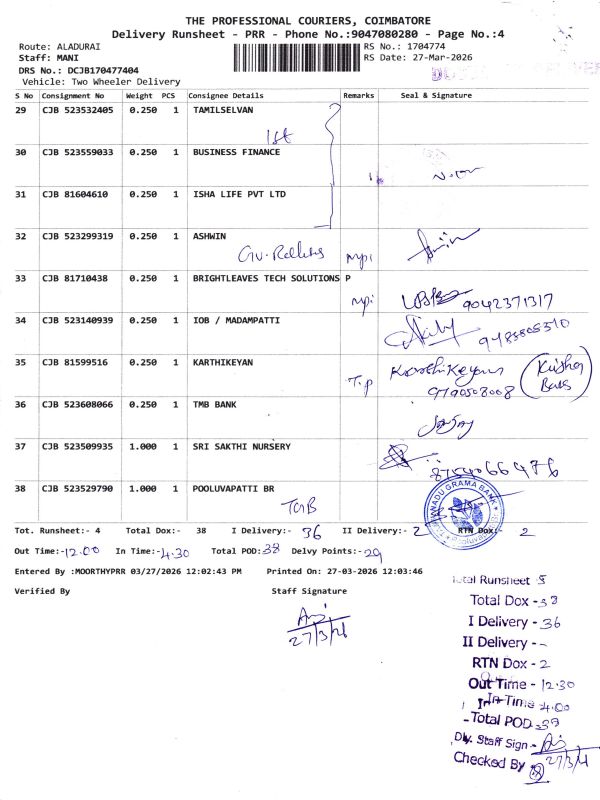 THE PROFESSIONAL COURIERS, COIMBATORE
Delivery Runsheet - PRR - Phone No.:9047080280 - Page No.:4
Route: ALADURAI
RS No.: 1704774
Staff: MANI
RS Date: 27-Mar-2026
DRS No.: DCJB170477404
Vehicle: Two Wheeler Delivery
S No Consignment No Weight PCS Consignee Details Remarks Seal & Signature
29 CJB 523532405 0.250 1 TAMILSELVAN
1st
30 CJB 523559033 0.250 1 BUSINESS FINANCE
31 CJB 81604610 0.250 1 ISHA LIFE PVT LTD
32 CJB 523299319 0.250 1 ASHWIN
mpi
33 CJB 81710438 0.250 1 BRIGHTLEAVES TECH SOLUTIONS P
mpi 9042371317
34 CJB 523140939 0.250 1 IOB / MADAMPATTI
35 CJB 81599516 0.250 1 KARTHIKEYAN
T.p Karthikeyan
9790508008
36 CJB 523608066 0.250 1 TMB BANK
37 CJB 523509935 1.000 1 SRI SAKTHI NURSERY
38 CJB 523529790 1.000 1 POOLUVAPATTI BR
TGB
NADU GRAMA BANK
Tot. Runsheet:- 4 Total Dox:- 38 I Delivery:- 36 II Delivery:- 2 RTN Dox:- 2
Out Time:-12.00 In Time:-4.30 Total POD:38 Delvy Points:-29
Entered By :MOORTHYPRR 03/27/2026 12:02:43 PM Printed On: 27-03-2026 12:03:46
Verified By Staff Signature
27/3/26
Total Runsheet
Total Dox -38
I Delivery - 36
II Delivery - -
RTN Dox - 2
Out Time - 12.30
In Time 4.00
Total POD -38
Dly. Staff Sign -
Checked By 27/3/